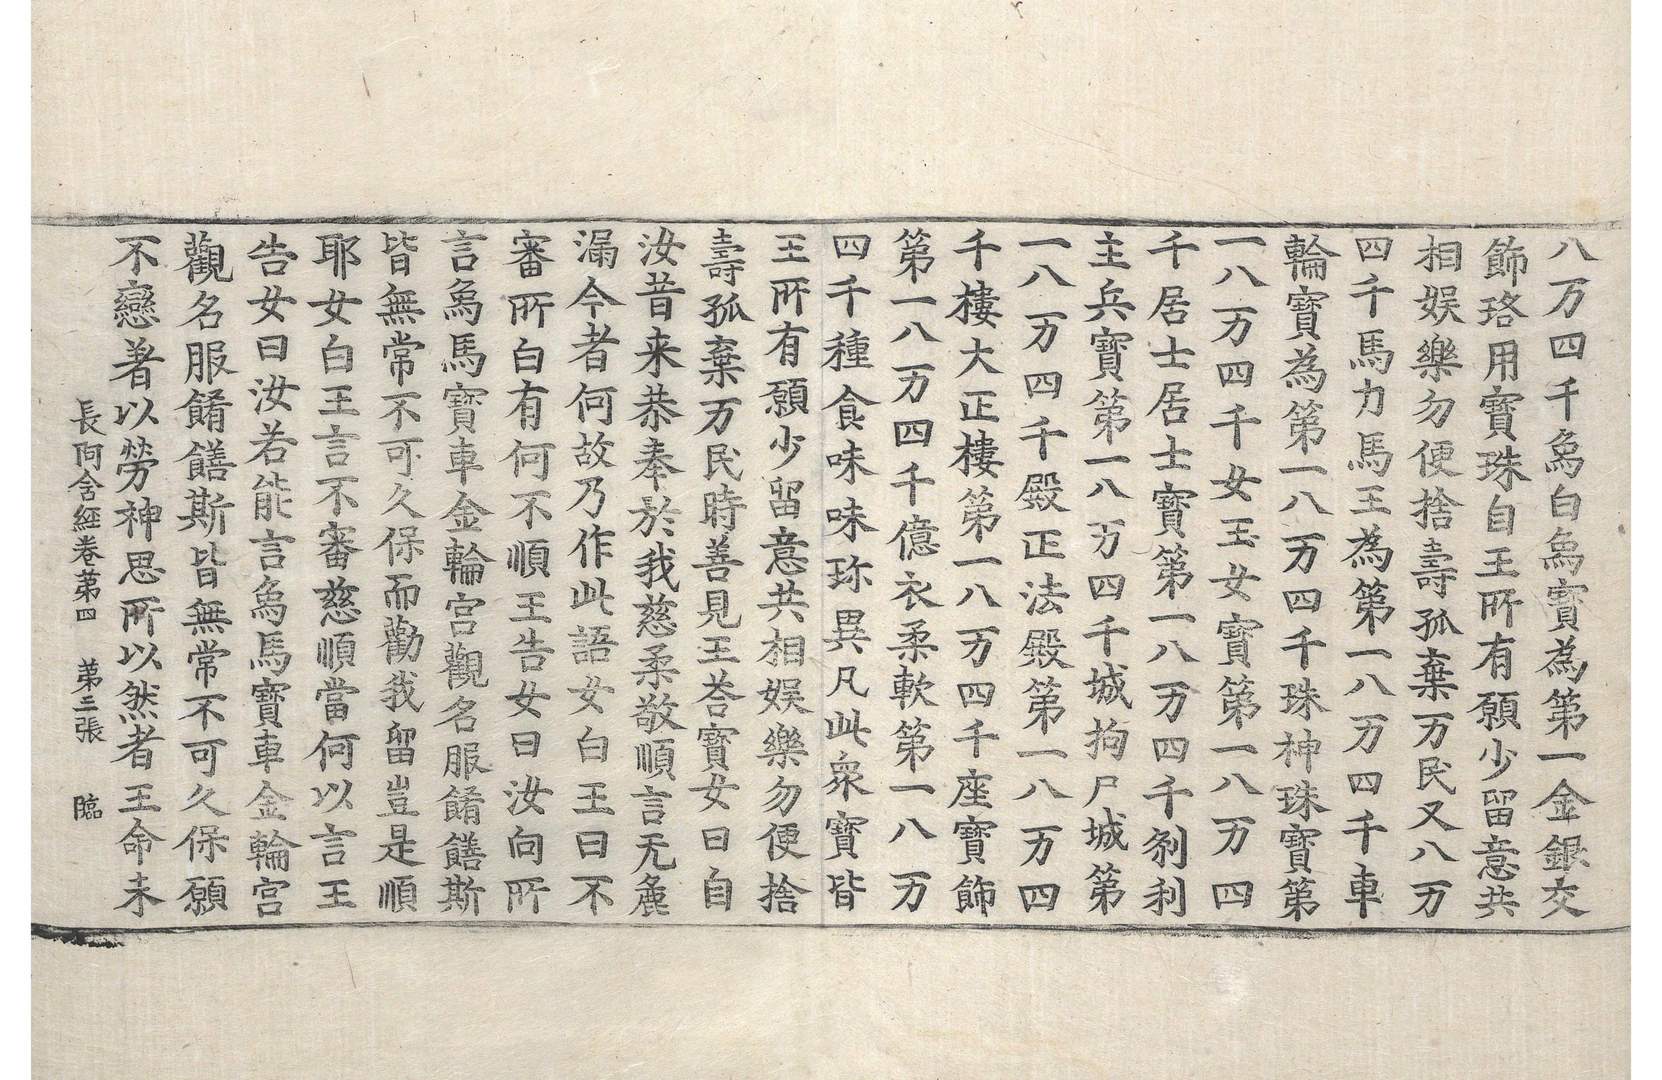 八万四千烏白烏寶為第一金銀交
飾珞用寶珠自王所有願少留意共
相娛樂勿便捨壽孤棄万民又八万
四千馬力馬王為第一八万四千車
輪寶為第一八万四千珠神珠寶第
一八万四千女玉女寶第一八万四
千居士居士寶第一八万四千刹利
主兵寶第一八万四千城拘尸城第
一八万四千殿正法殿第一八万四
千樓大正樓第一八万四千座寶飾
第一八万四千億衣柔軟第一八万
四千種食味味珎異凡此衆寶皆
王所有願少留意共相娛樂勿便捨
壽孤棄万民時善見王荅寳女曰自
汝昔来恭奉於我慈柔敬順言无麁
漏今者何故乃作此語女白王曰不
審所白有何不順王告女曰汝向所
言烏馬寶車金輪宮觀名服餚饍斯
皆無常不可久保而勸我留豈是順
耶女白王言不審慈順當何以言王
告女曰汝若能言烏馬寶車金輪宮
觀名服餚饍斯皆無常不可久保願
不戀著以勞神思所以然者王命未
長阿含經卷第四　第三張　臨